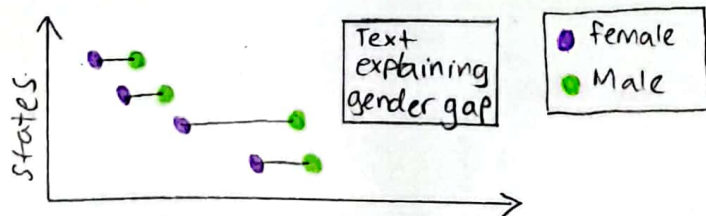 states
Text
explaining
gender gap
female
Male